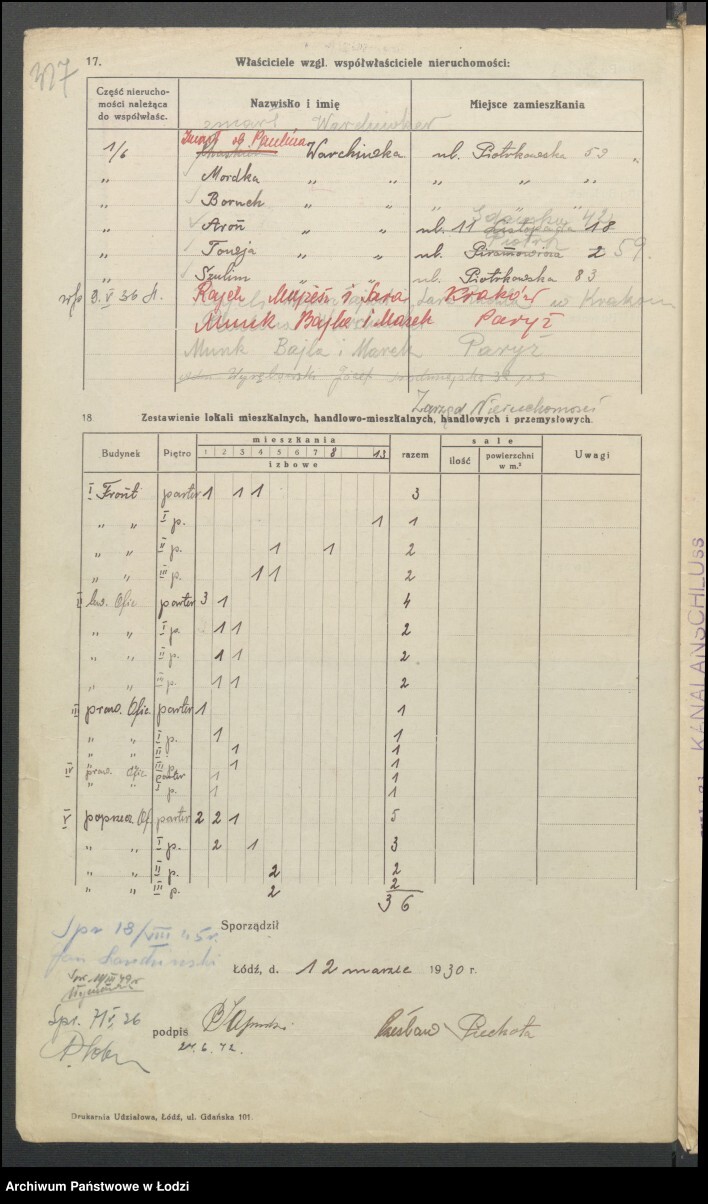 317
17. Właściciele wzgl. współwłaściciele nieruchomości:
Część nierucho-
mości należąca
do współwłaśc.
Nazwisko i imię
Miejsce zamieszkania
zmarł
1/6 Paulina Warchiwska ul. Piotrkowska 53 „
„ Mordka „ „ „ „ „
„ Boruch „ „
„ Aroń „ „ ul. 11 Listopada 18
„ Toneja „ „ ul. Piramowicza 2 59.
„ Szulim „ „ ul. Piotrkowska 83
3.V 36 Rajch Mojżesz i Sara Kraków w Krakow
Munk Bajla i Marek Paryż
Munk Bajla i Marek Paryż
Józef
Zarząd Nieruchomości
18 Zestawienie lokali mieszkalnych, handlowo-mieszkalnych, handlowych i przemysłowych.
Budynek Piętro mieszkania razem sale Uwagi
1 2 3 4 5 6 7 8 13
izbowe
ilość powierzchni
w m.²
I Front parter 1 1 1 3
„ „ I p. 1 1
„ „ II p. 1 1 2
„ „ III p. 1 1 2
II lew. Ofic parter 3 1 4
„ „ I p. 1 1 2
„ „ II p. 1 1 2
„ „ III p. 1 1 2
III praw. Ofic. parter 1 1
„ „ I p. 1 1
„ „ II p. 1 1
„ III p. 1 1
IV praw. Ofic parter 1 1
„ „ I p. 1 1
V poprzecz. Of. parter 2 2 1 5
„ „ I p. 2 1 3
„ „ II p. 2 2
„ „ III p. 2 2
36
Spr 18/VIII 45 r.
Sporządził
Jan
Łódź, d. 12 marzec 1930 r.
Spr.
podpis
24.6.42.
Czesław Piechota
Drukarnia Udziałowa, Łódź, ul. Gdańska 101.
KANALANSCHLUSS
Archiwum Państwowe w Łodzi